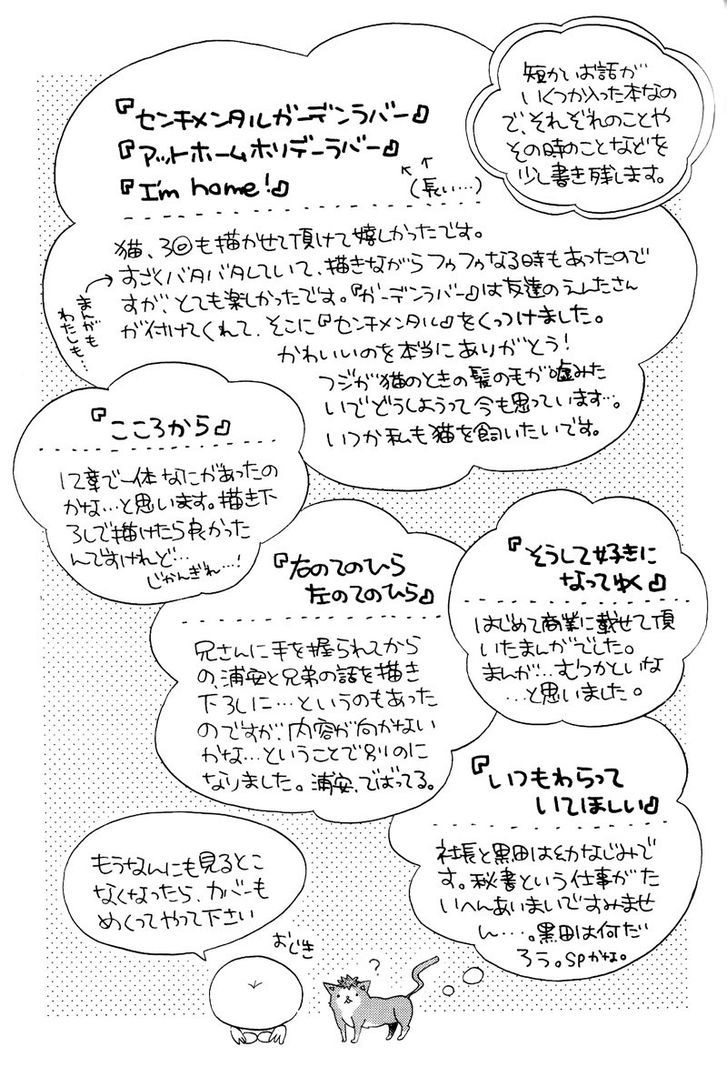 短かいお話が
いくつか入った本なの
で、それぞれのことや
その時のことなどを
少し書き残します。
『センチメンタルガーデンラバー』
『アットホームホリデーラバー』
『I'm home!』
(長い…)
猫、3回も描かせて頂けて嬉しかったです。
すごくバタバタしていて、描きながらフゥフゥなる時もあったので
すが、とても楽しかったです。『ガーデンラバー』は友達のえしたさん
が付けてくれて、そこに『センチメンタル』をくっつけました。
かわいいのを本当にありがとう!
フジが猫のときの髪の毛が歯みた
いでどうしようって今も思っています…。
いつか私も猫を飼いたいです。
まんがも
わたしも…
『こころから』
12章で一体なにがあったの
かな…と思います。描き下
ろしで描けたら良かった
んですけれど…
じかんぎれ…!
『右のてのひら
左のてのひら』
兄さんに手を握られてから
の、浦安と兄弟の話を描き
下ろしに…というのもあった
のですが、内容が向かない
かな…ということで別のに
なりました。浦安、でばってる。
『そうして好きに
なってゆく』
はじめて商業に載せて頂
いたまんがでした。
まんが…むつかしいな
…と思いました。
『いつもわらって
いてほしい』
社長と黒田は幼なじみで
す。秘書という仕事がた
いへんあいまいですみませ
ん…。黒田は何だ
ろう。SPかな。
もうなんにも見るとこ
なくなったら、カバーも
めくってやって下さい
おじぎ
?